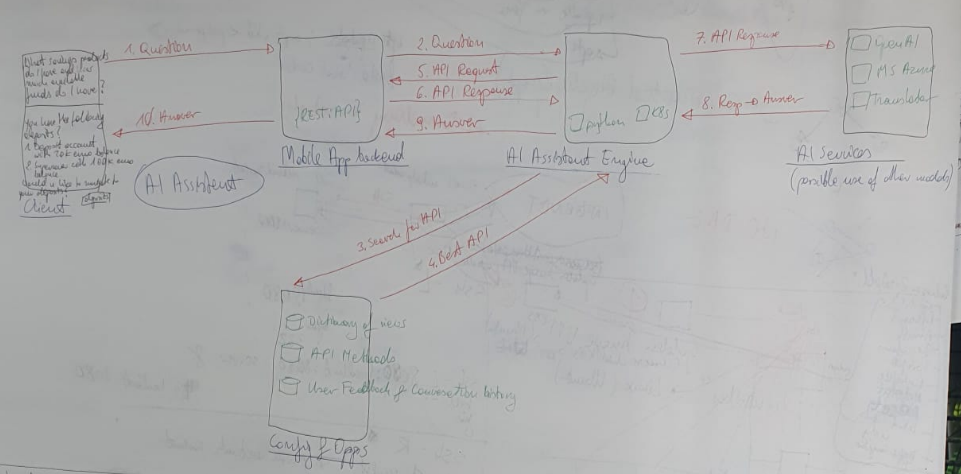 What savings products
do I have and how
much available
funds do I have?
You have the following
deposits:
1 Deposit account
with 20k euro balance
balance.
your deposits?
Client
AI Assistent
1. Question
10. Answer
{REST:API}
Mobile App backend
2. Question
5. API Request
6. API Response
9. Answer
python
K8s
AI Assistent Engine
7. API Response
8. Resp → Answer
OpenAI
MS Azure
Translator
AI Services
(possible use of other models)
3. Search for API
4. Best API
Dathway of views
API Methods
User Feedback & Conversation history
Config & Opps